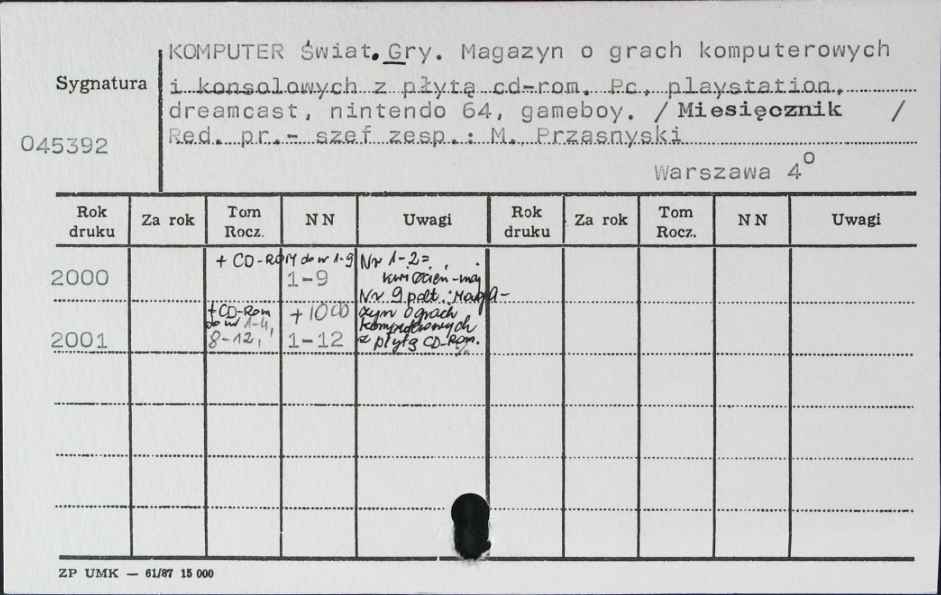 KOMPUTER Świat. Gry. Magazyn o grach komputerowych
Sygnatura
i konsolowych z płytą cd-rom. Pc, playstation,
dreamcast, nintendo 64, gameboy. / Miesięcznik /
045392
Red. pr.- szef zesp.: M. Przasnyski
Warszawa 4°
Rok druku Za rok Tom Rocz. NN Uwagi Rok druku Za rok Tom Rocz. NN Uwagi
+ CD-ROM do nr 1-9 Nr 1-2=
2000 1-9 kwiecien-maj
Nr 9 podt.: Maga-
+CD-Rom +10CD zyn o grach
do nr 1-4, komputerowych
2001 8-12, 1-12 z płytą CD-Rom.
ZP UMK — 61/87 15 000